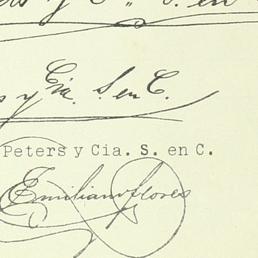 y C. S. en
s y Cia. S. en C.
Peters y Cia. S. en C.
Emiliano Flores